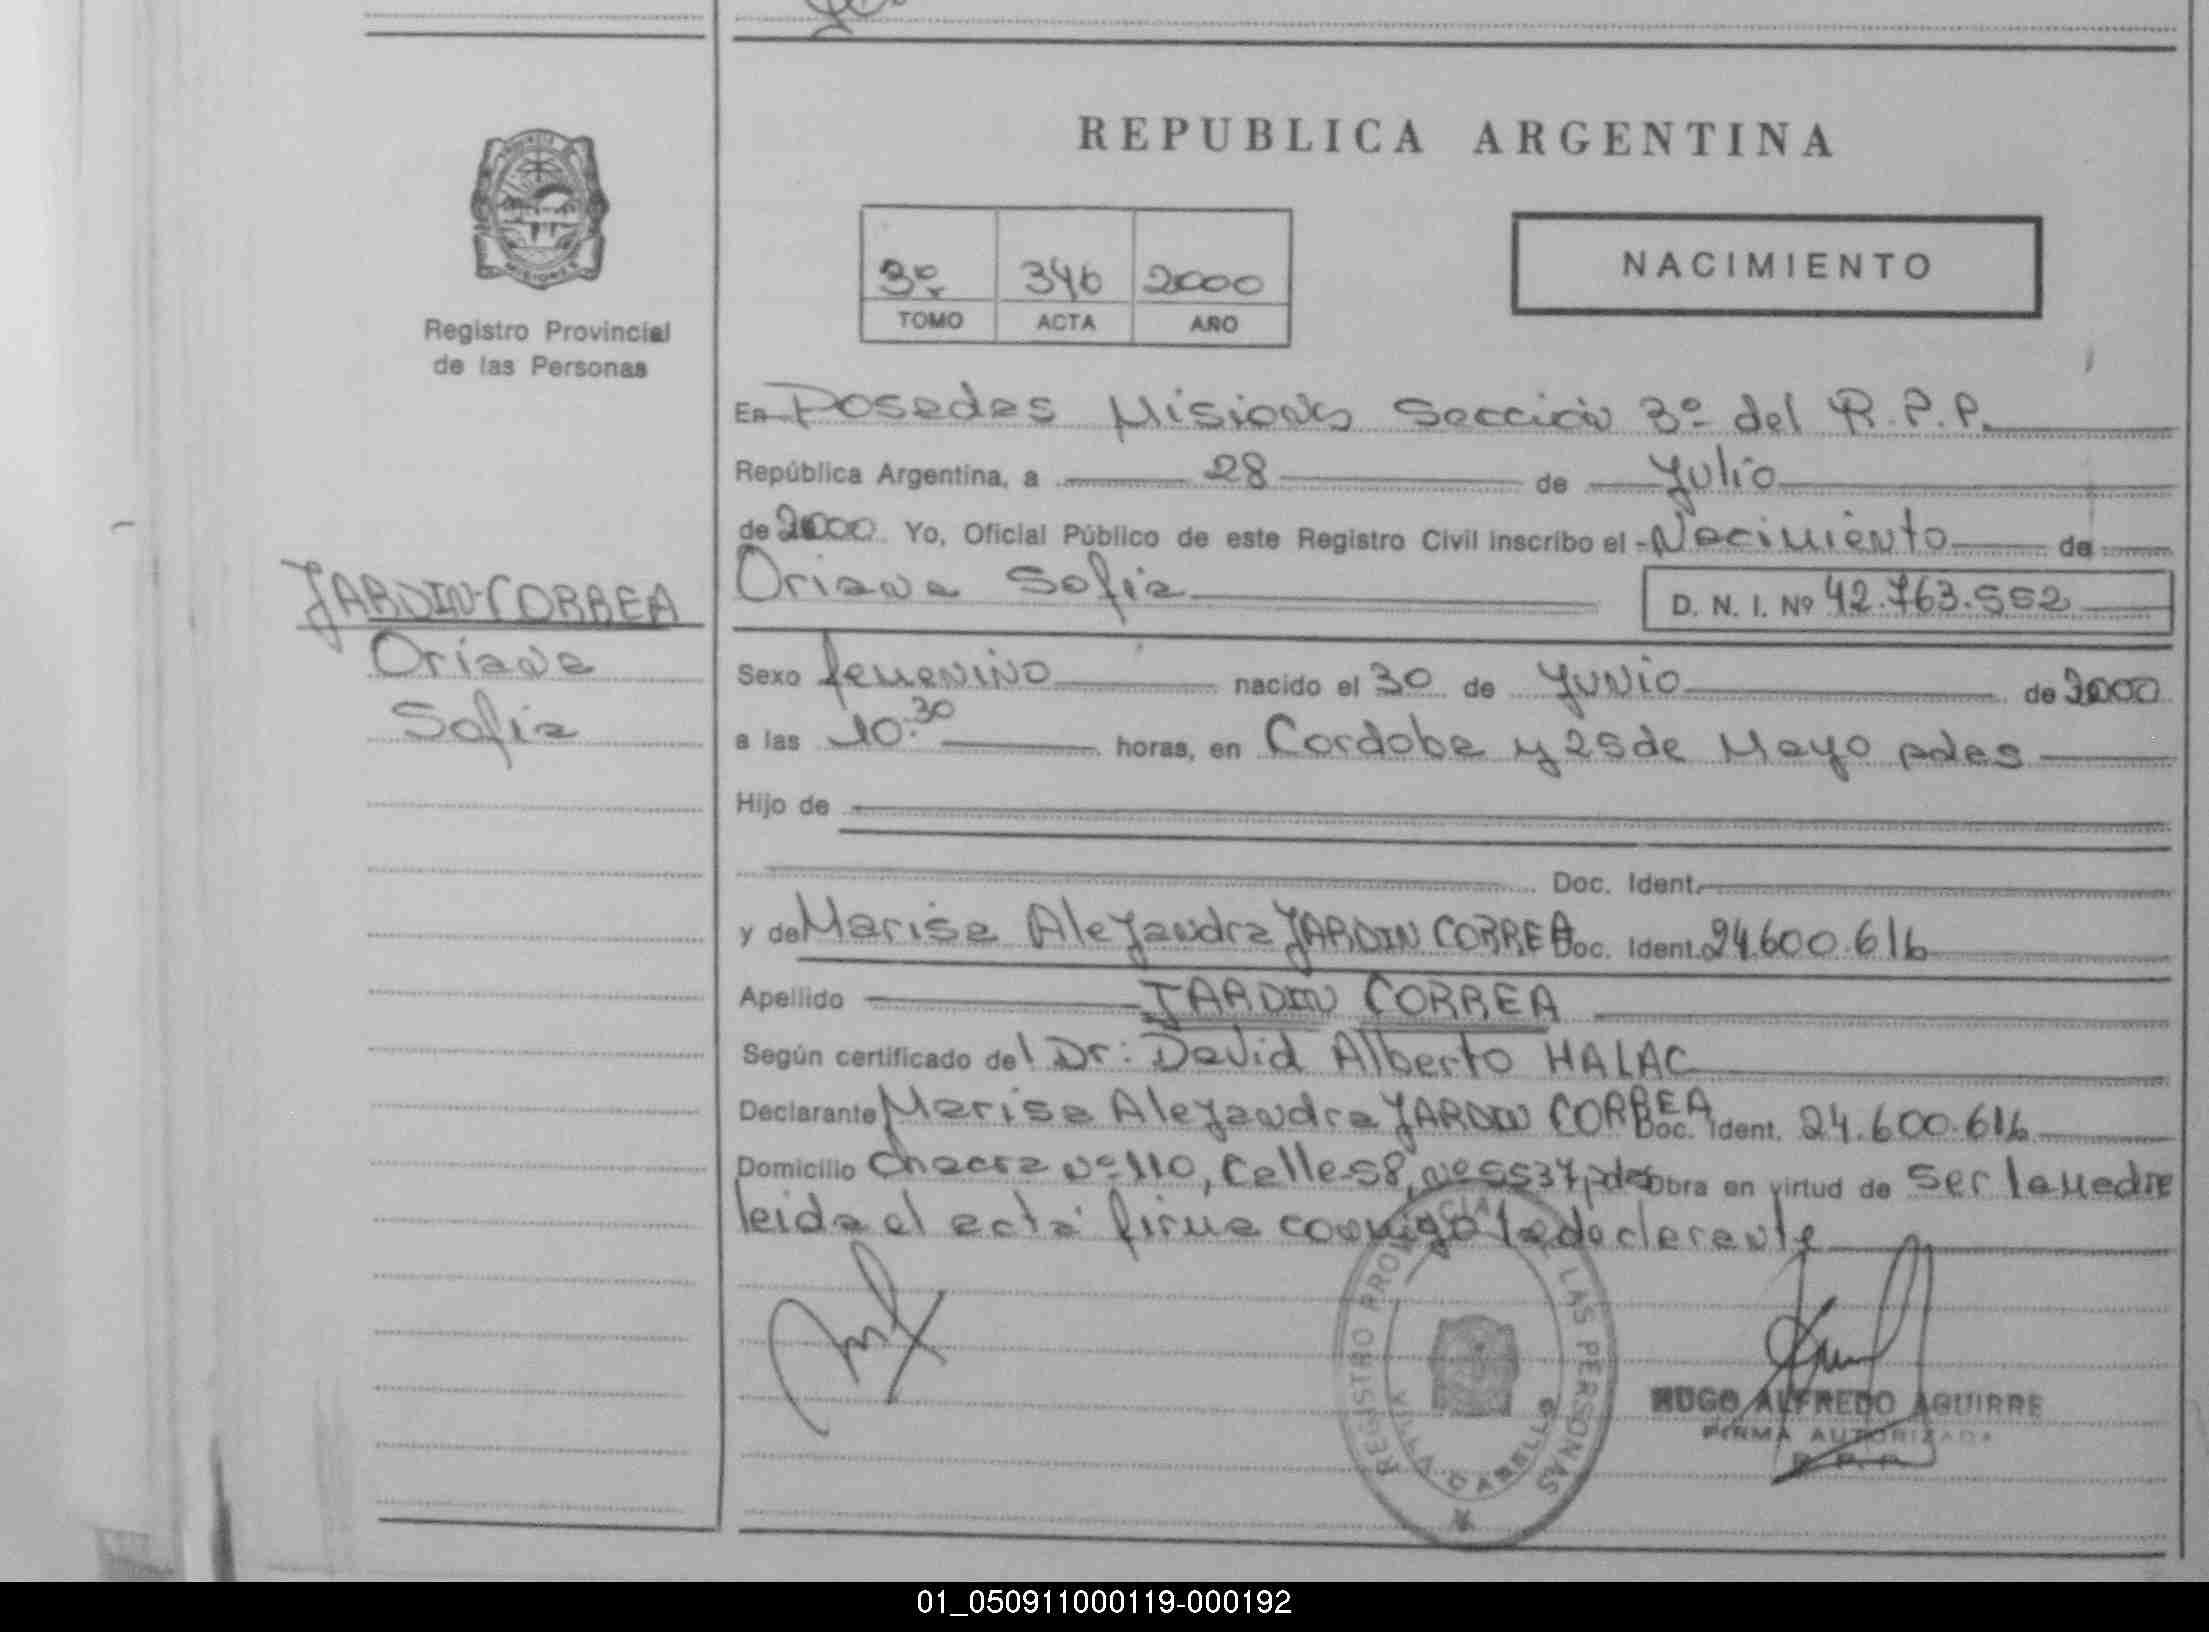 REPUBLICA ARGENTINA
MISIONES
Registro Provincial
de las Personas
3º 346 2000
TOMO ACTA AÑO
NACIMIENTO
En Posadas Misiones Sección 3º del R.P.P.
República Argentina, a 28 de Julio
de 2000 Yo, Oficial Público de este Registro Civil inscribo el Nacimiento de
Oriana Sofia D. N. I. Nº 42.763.552
JARDIN CORREA
Oriana
Sofia
Sexo femenino nacido el 30 de Junio de 2000
a las 10.30 horas, en Cordoba y 25 de Mayo pdas
Hijo de
Doc. Ident.
y de Marisa Alejandra JARDIN CORREA Doc. Ident. 24.600.616
Apellido JARDIN CORREA
Según certificado del Dr: David Alberto HALAC
Declarante Marisa Alejandra JARDIN CORREA Doc. Ident. 24.600.616
Domicilio Chacra nº 110, Calle 58, nº 5537, pdas Obra en virtud de ser la madre
leida el acta firma conmigo la declarante
REGISTRO PROVINCIAL LAS PERSONAS
VILLA CABELLO
HUGO ALFREDO AGUIRRE
FIRMA AUTORIZADA
R. P. P.
01_050911000119-000192